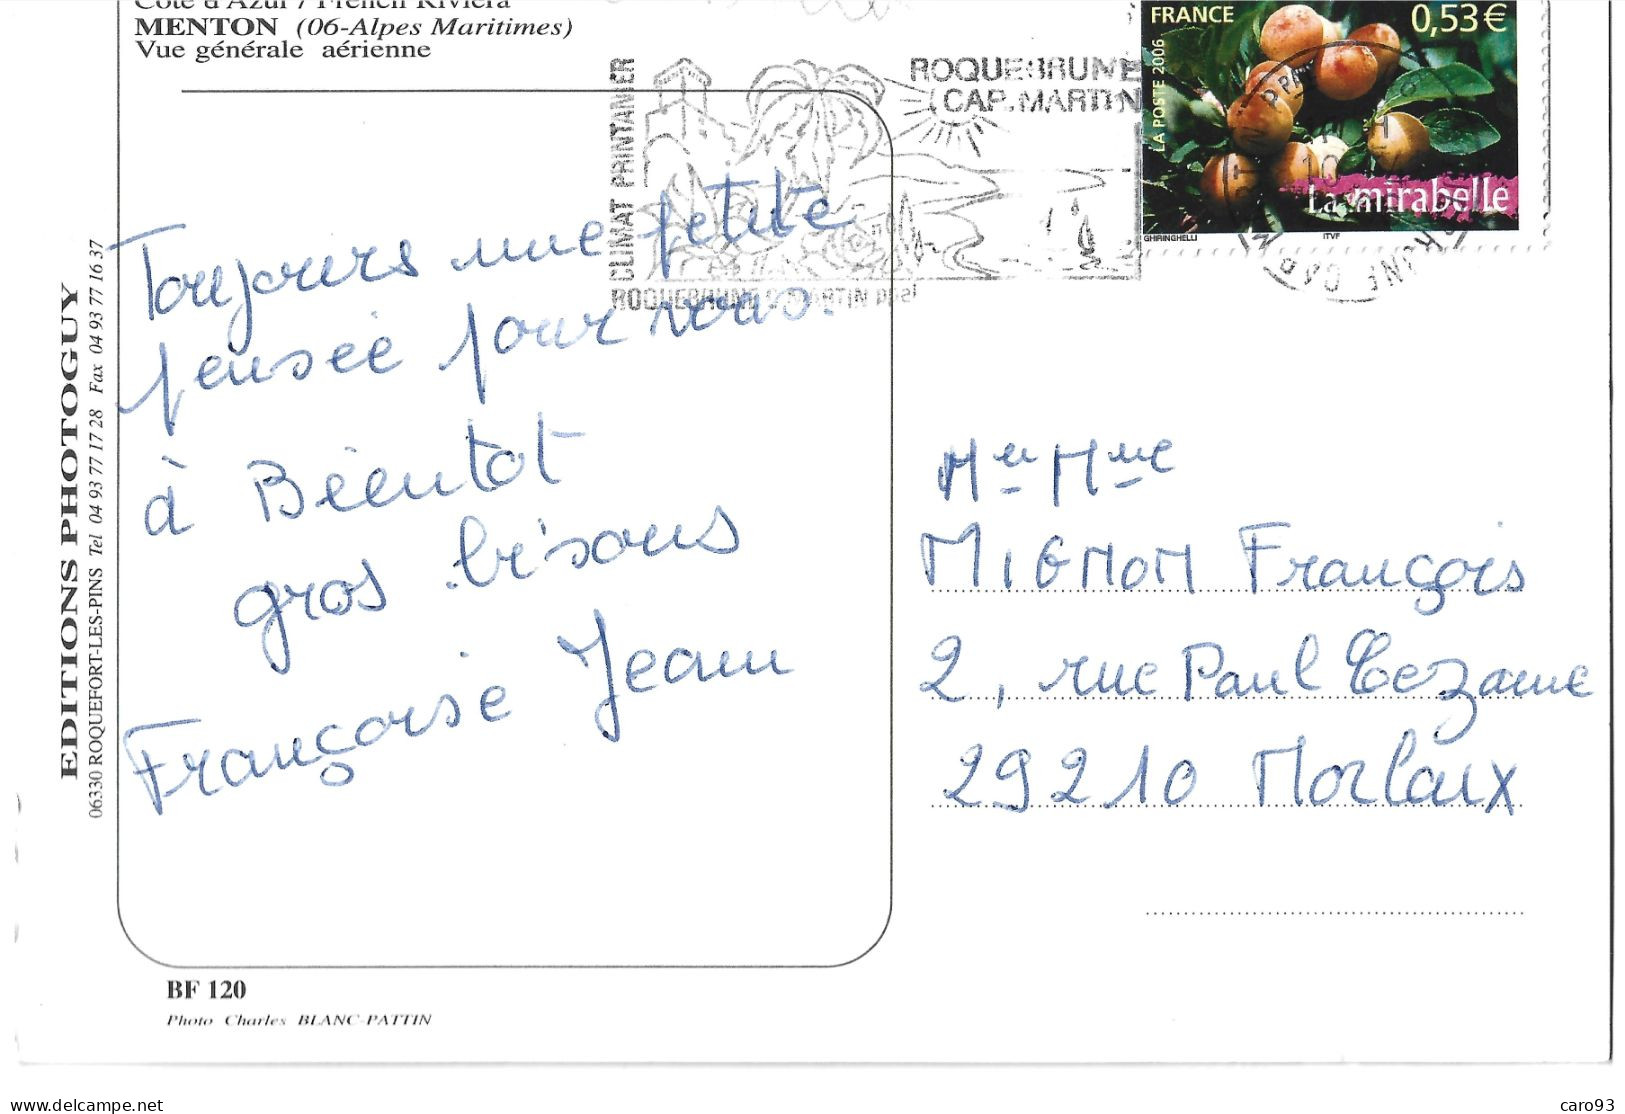 Côte d'Azur / French Riviera
MENTON (06-Alpes Maritimes)
Vue générale aérienne
FRANCE 0,53€
LA POSTE 2006
La mirabelle
GHIRINGHELLI ITVF
ROQUEBRUNE
CAP. MARTIN
CLIMAT PRINTANIER
EDITIONS PHOTOGUY
06330 ROQUEFORT-LES-PINS Tel 04 93 77 17 28 Fax 04 93 77 16 37
Toujours une petite
pensée pour vous.
à Bientot
gros bisous
Françoise Jean
Mr Mme
MIGNON François
2, rue Paul Cezanne
29210 Morlaix
BF 120
Photo Charles BLANC-PATTIN
delcampe.net
caro93